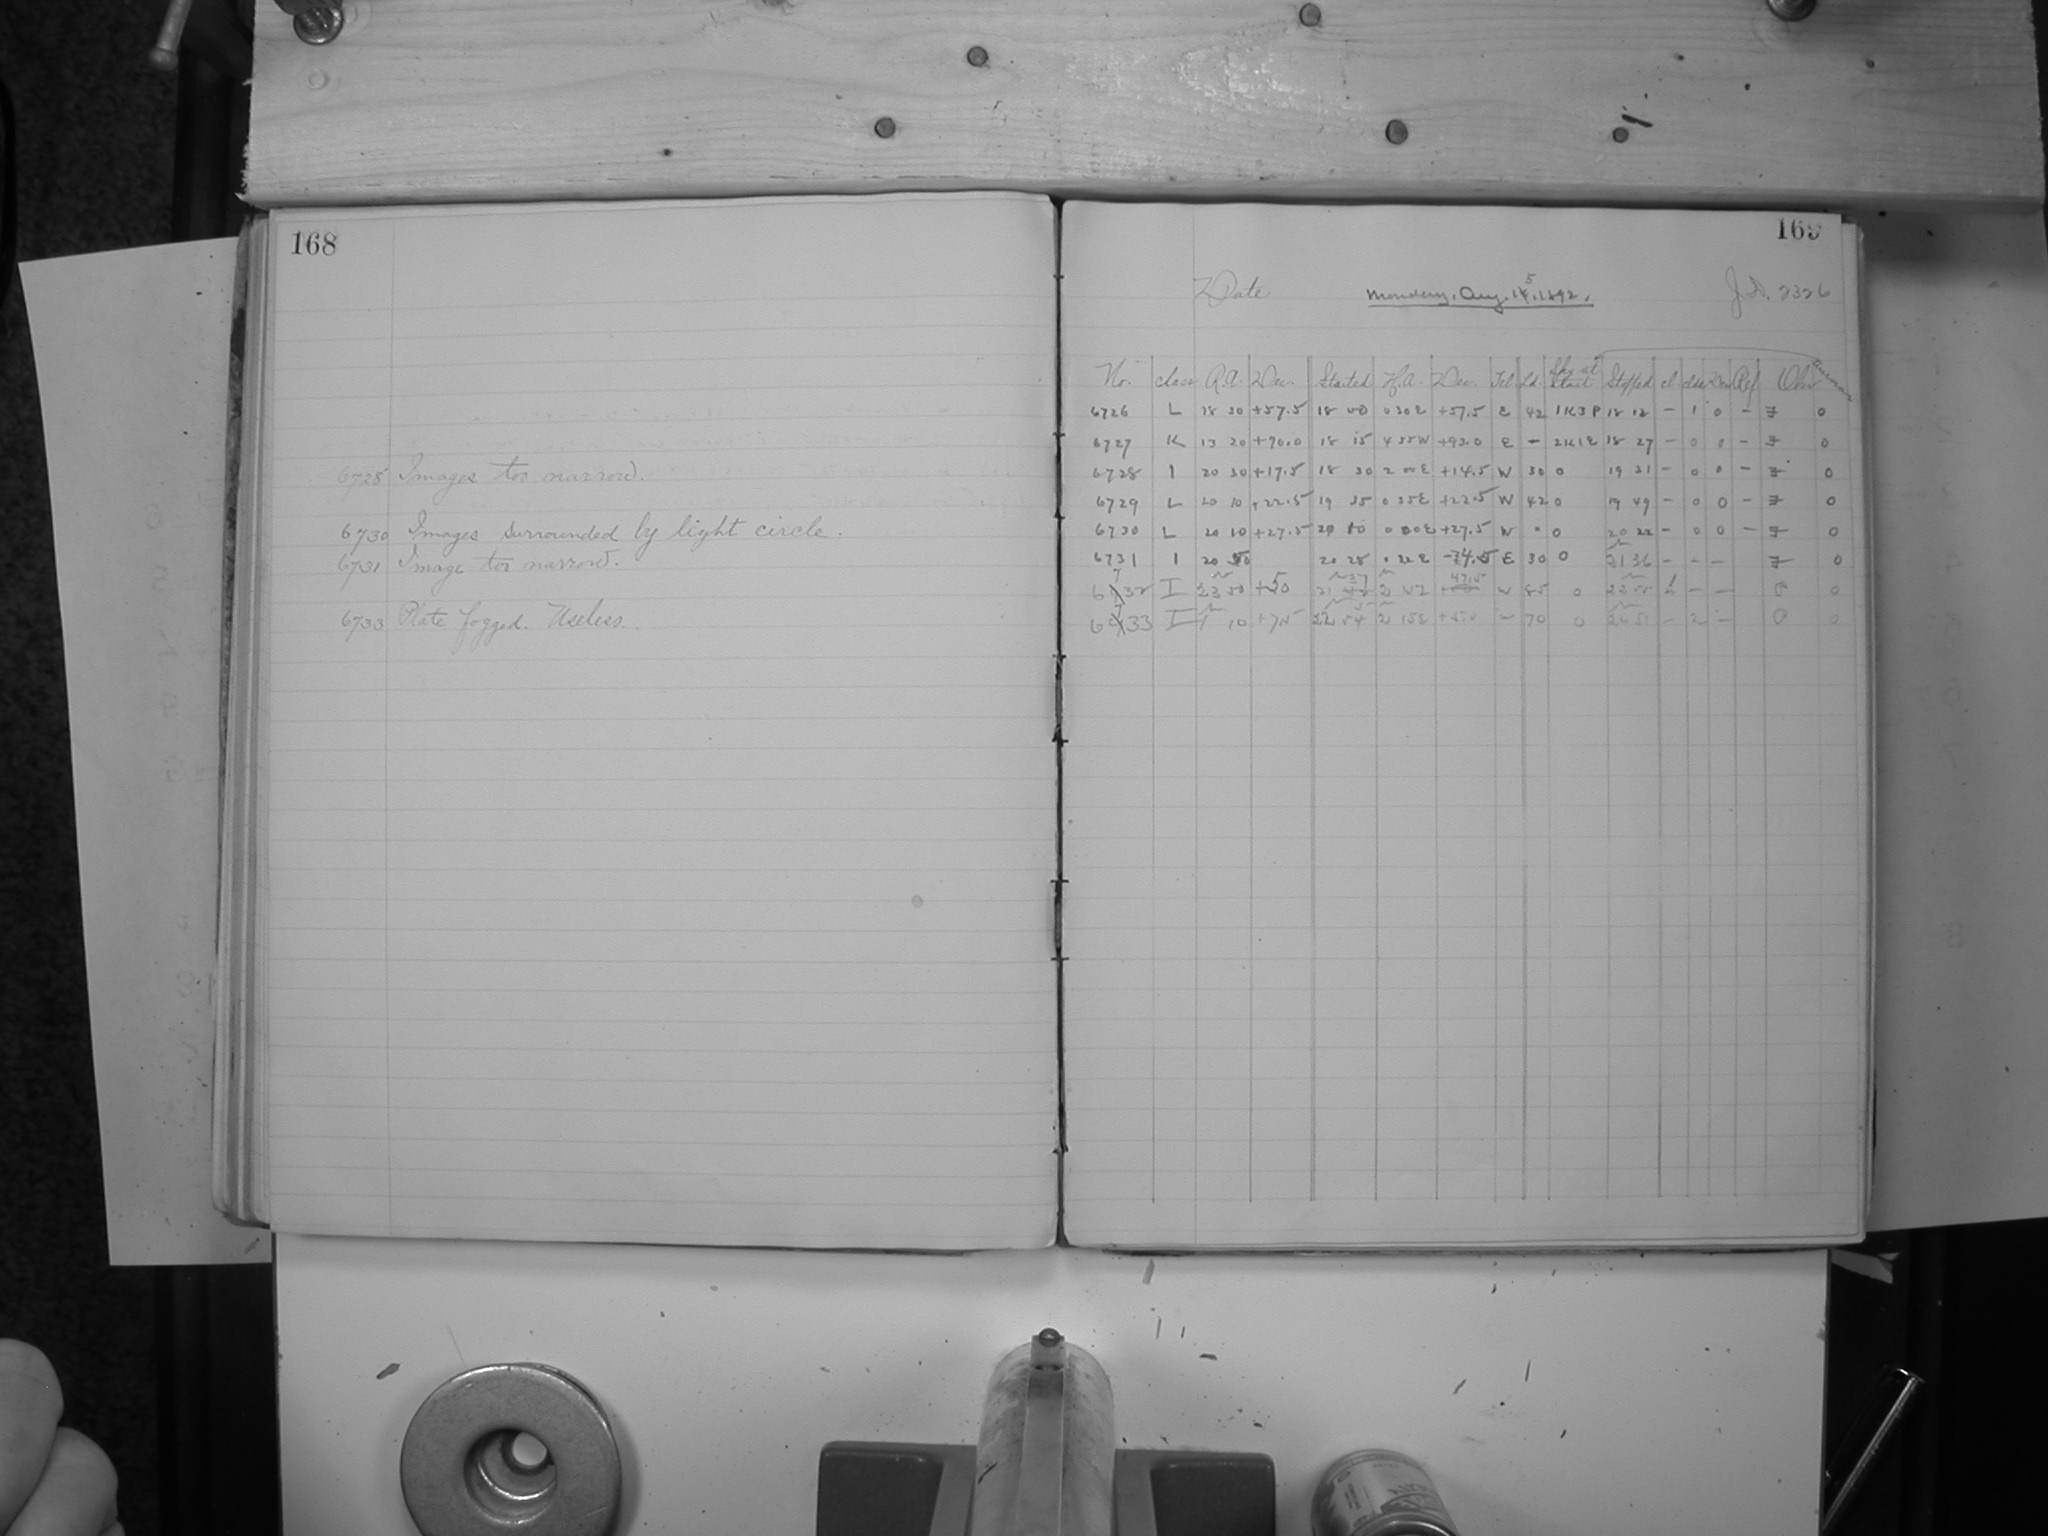 168
6728 Images too narrow.
6730 Images surrounded by light circle.
6731 Image too narrow.
6733 Plate fogged. Useless.
169
Date Monday, Aug. 15, 1892. J.D. 2326
No. class R.A. Dec. Started H.A. Dec. Tel Ld. Sky at Start Stopped cl clds Dew Ref Obs
6726 L 18 30 +57.5 18 00 0 30 E +57.5 E 42 1K3P 18 12 - 1 0 - F 0
6727 K 13 20 +90.0 18 15 4 55 W +93.0 E - 2K1E 18 27 - 0 0 - F 0
6728 I 20 30 +17.5 18 30 2 00 E +14.5 W 30 0 19 31 - 0 0 - F 0
6729 L 20 10 +22.5 19 35 0 35 E +22.5 W 42 0 19 49 - 0 0 - F 0
6730 L 20 10 +27.5 20 10 0 00 E +27.5 W 0 20 22 - 0 0 - F 0
6731 I 20 50 20 28 0 22 E -74.5 E 30 0 21 36 - - - F 0
6732 I 23 50 +50 21 37 2 47.5 W 85 0 - - 0
6733 I 1 10 22 54 2 15 E 70 0 - 2 - 0